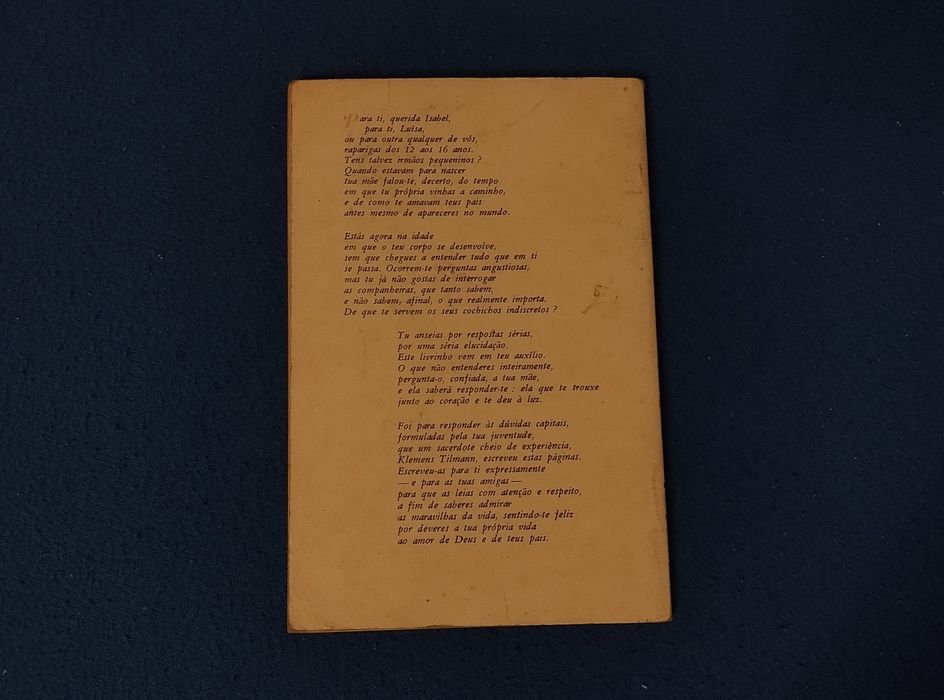 Para ti, querida Isabel,
para ti, Luísa,
ou para outra qualquer de vós,
raparigas dos 12 aos 16 anos.
Tens talvez irmãos pequeninos ?
Quando estavam para nascer
tua mãe falou-te, decerto, do tempo
em que tu própria vinhas a caminho,
e de como te amavam teus pais
antes mesmo de apareceres no mundo.
Estás agora na idade
em que o teu corpo se desenvolve,
sem que chegues a entender tudo que em ti
se passa. Ocorrem-te perguntas angustiosas,
mas tu já não gostas de interrogar
as companheiras, que tanto sabem,
e não sabem, afinal, o que realmente importa.
De que te servem os seus cochichos indiscretos ?
Tu anseias por respostas sérias,
por uma séria elucidação.
Este livrinho vem em teu auxílio.
O que não entenderes inteiramente,
pergunta-o, confiada, a tua mãe,
e ela saberá responder-te : ela que te trouxe
junto ao coração e te deu à luz.
Foi para responder às dúvidas capitais,
formuladas pela tua juventude,
que um sacerdote cheio de experiência,
Klemens Tilmann, escreveu estas páginas.
Escreveu-as para ti expressamente
— e para as tuas amigas —
para que as leias com atenção e respeito,
a fim de saberes admirar
as maravilhas da vida, sentindo-te feliz
por deveres a tua própria vida
ao amor de Deus e de teus pais.